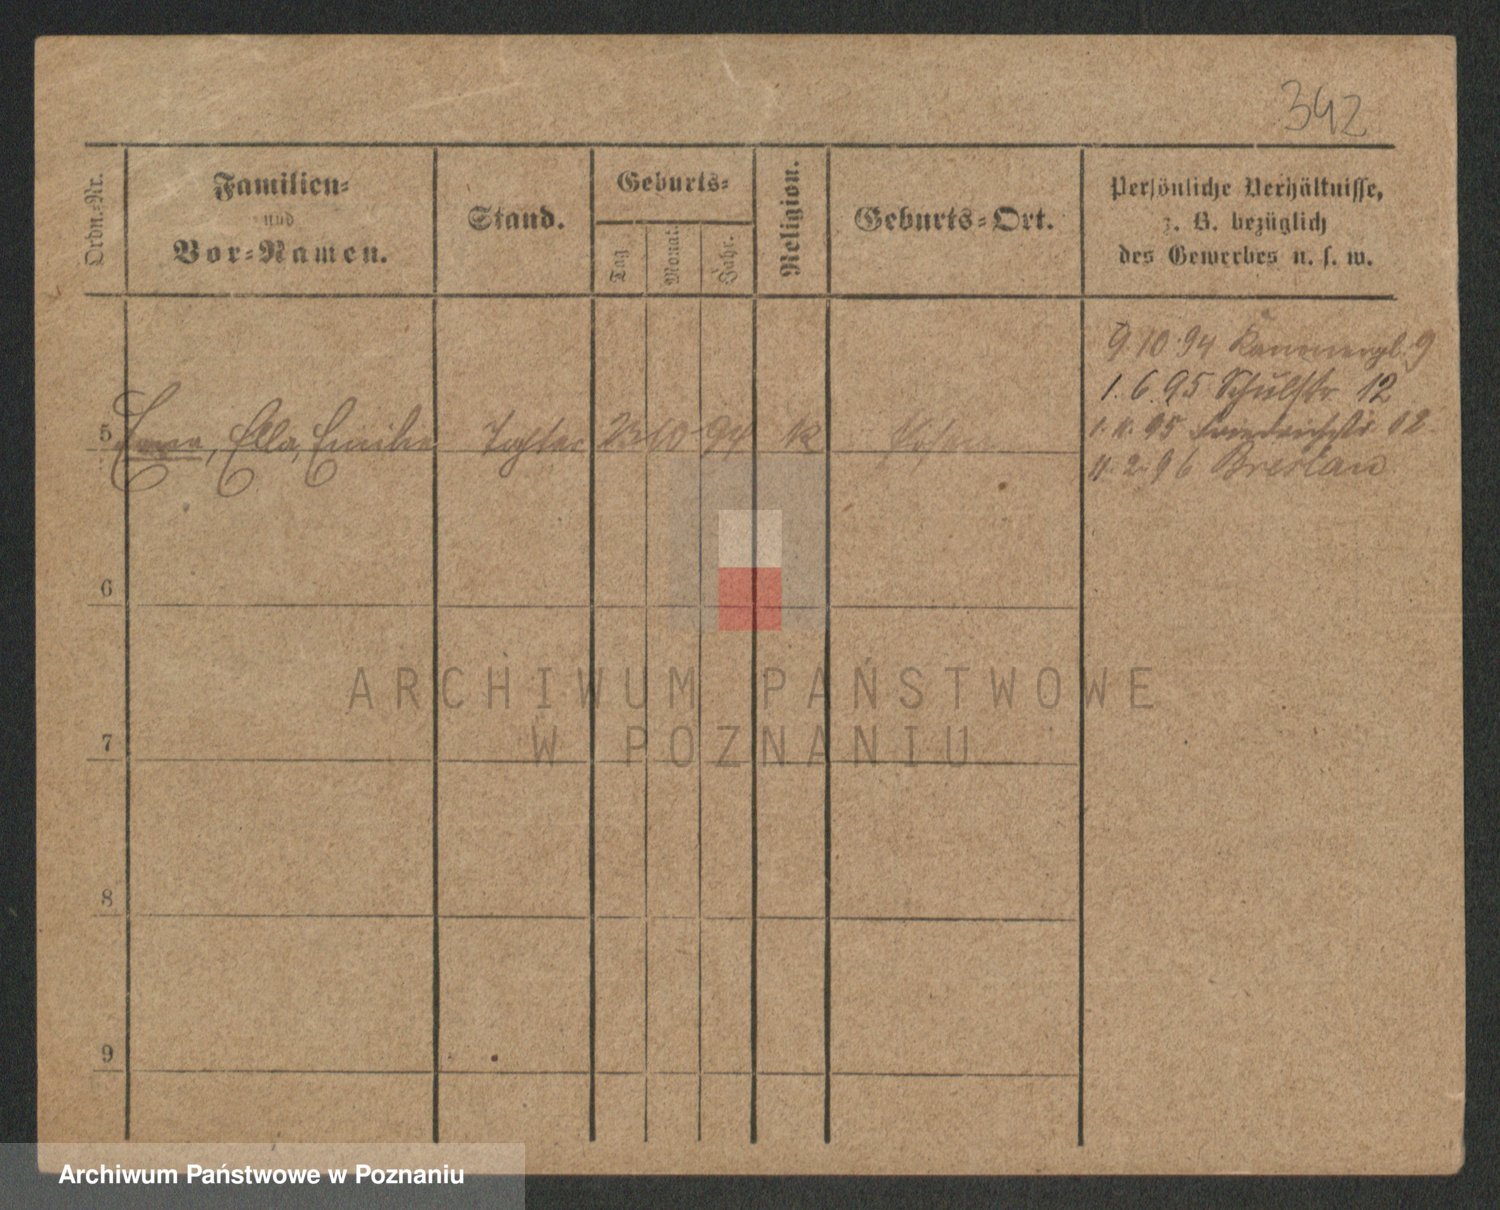 342
Ordn.-Nr.
Familien-
und
Vor-Namen.
Stand.
Geburts-
Tag
Monat
Jahr.
Religion.
Geburts-Ort.
Persönliche Verhältnisse,
z. B. bezüglich
des Gewerbes u. s. w.
9.10.94 9
1.6.95 Schulstr 12
5 Ella, Tochter 23 10 94 K Posen
1.11.95 Friedrichstr 12
11.2.96 Breslau
6
ARCHIWUM PAŃSTWOWE
W POZNANIU
7
8
9
Archiwum Państwowe w Poznaniu